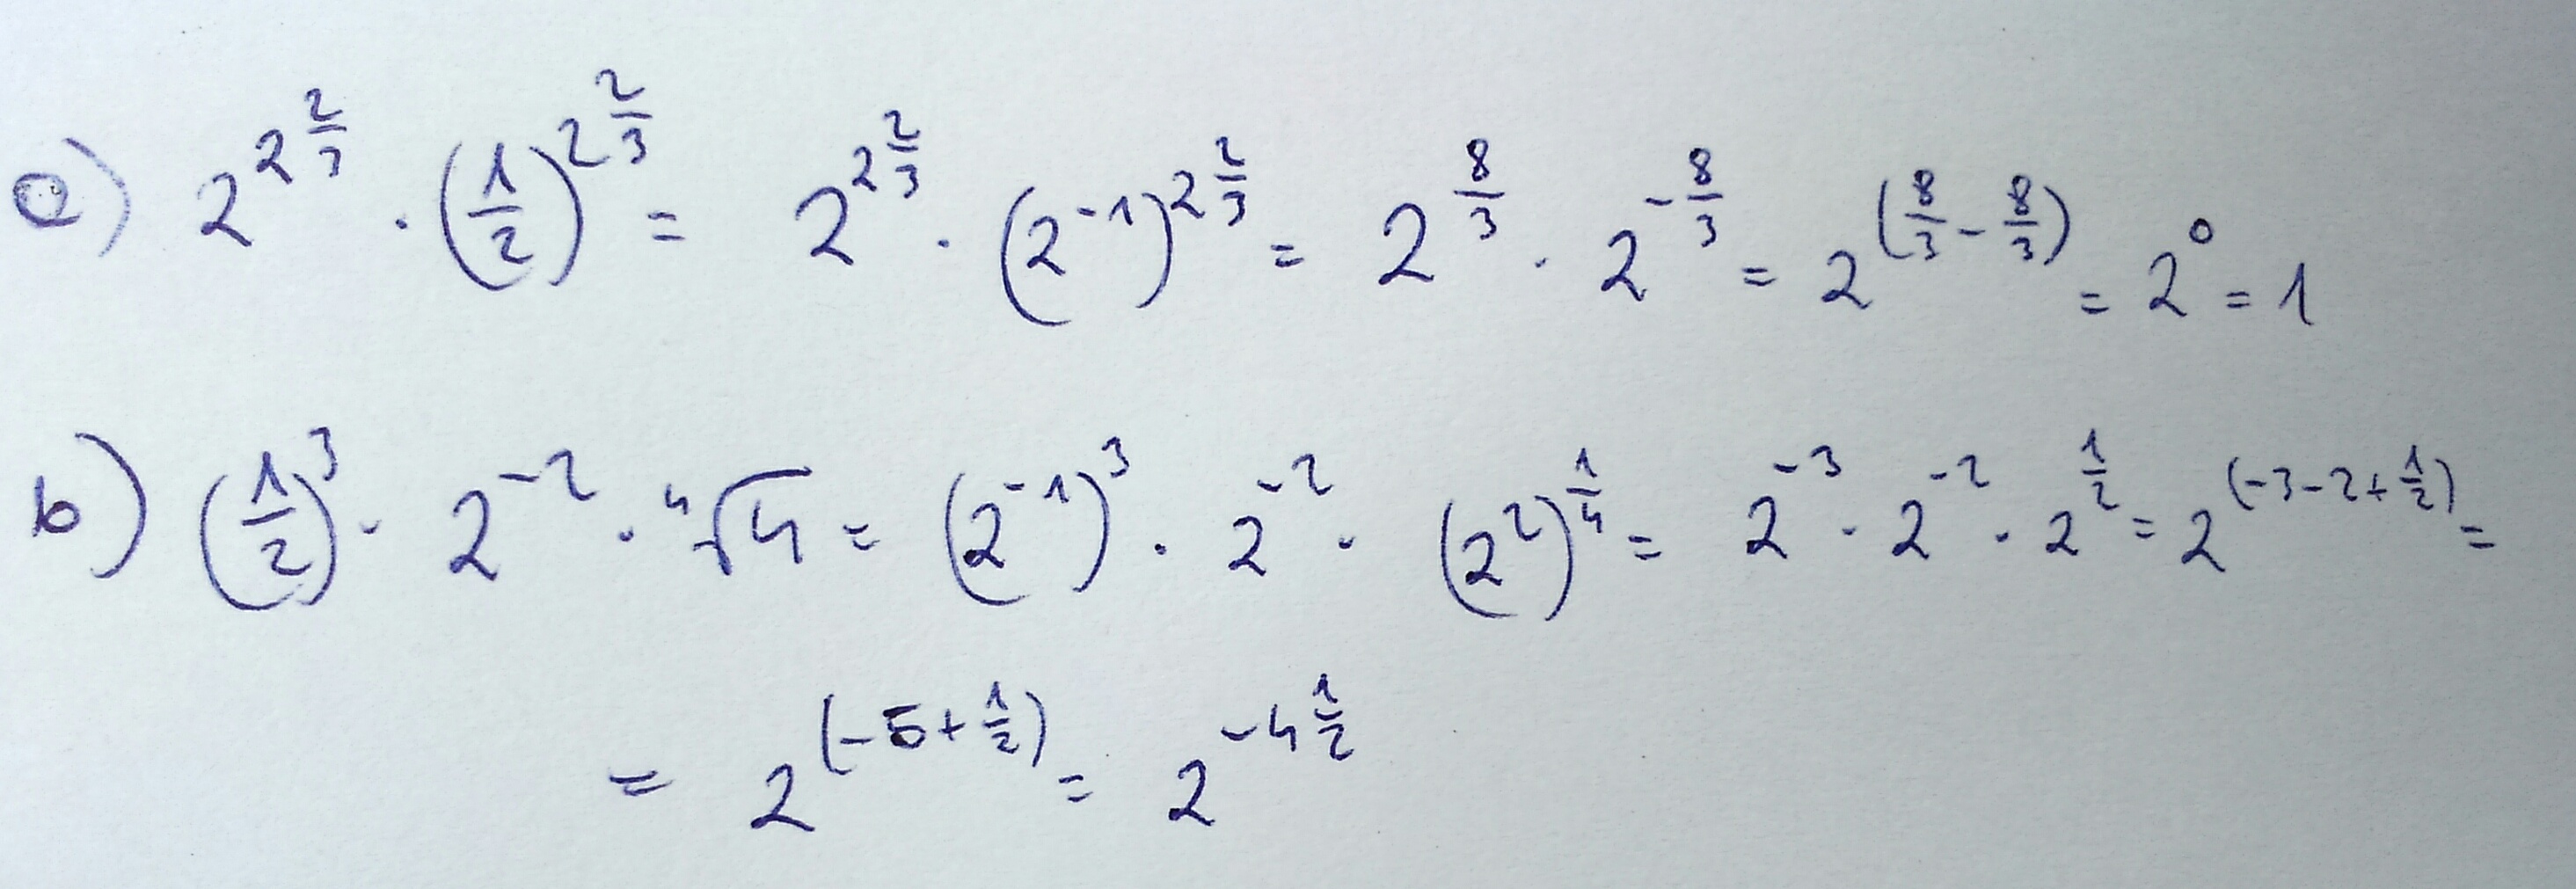 a) 2^{2\frac{2}{3}} · (\frac{1}{2})^{2\frac{2}{3}} = 2^{2\frac{2}{3}} · (2^{-1})^{2\frac{2}{3}} = 2^{\frac{8}{3}} · 2^{-\frac{8}{3}} = 2^{(\frac{8}{3}-\frac{8}{3})} = 2^0 = 1
b) (\frac{1}{2})^3 · 2^{-2} · \sqrt[4]{4} = (2^{-1})^3 · 2^{-2} · (2^2)^{\frac{1}{4}} = 2^{-3} · 2^{-2} · 2^{\frac{1}{2}} = 2^{(-3-2+\frac{1}{2})} =
= 2^{(-5+\frac{1}{2})} = 2^{-4\frac{1}{2}}